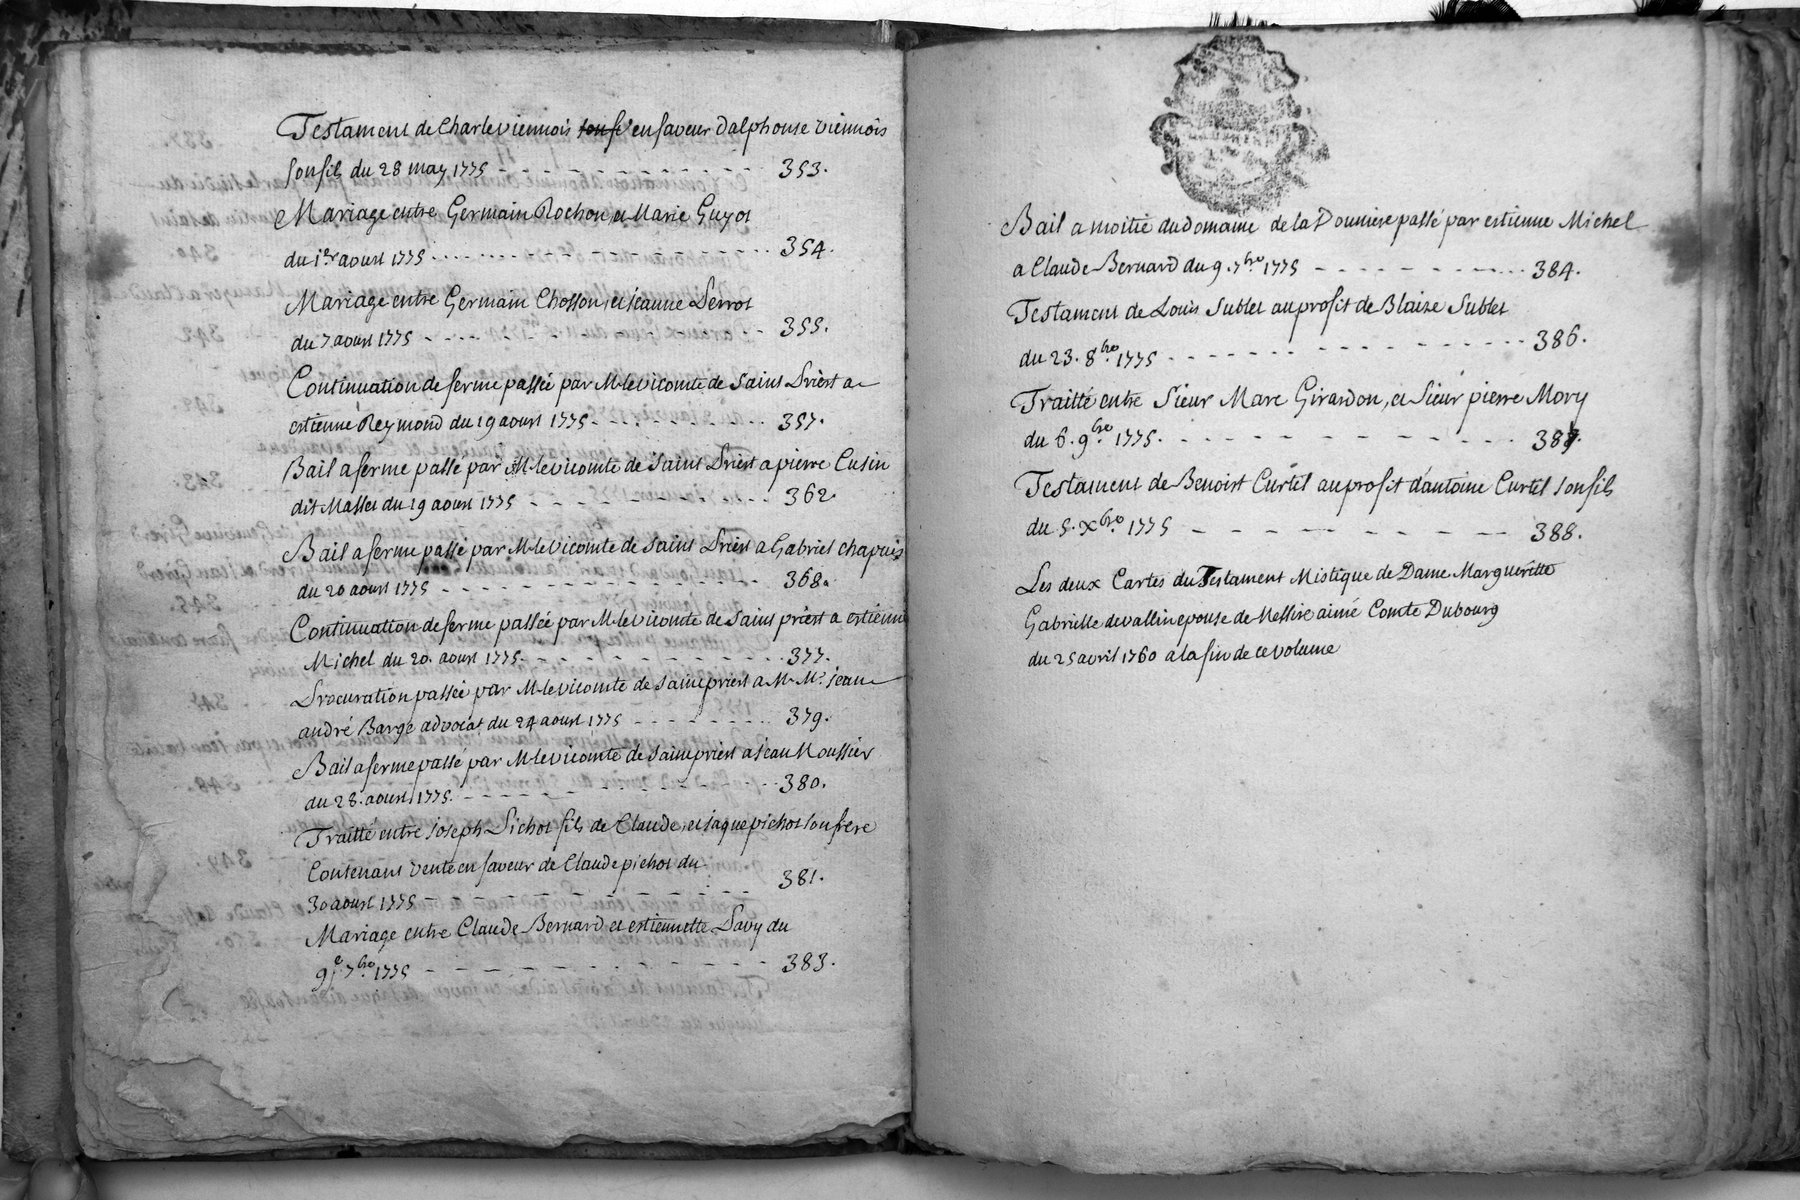 Testament de Charle viennois en faveur d'alphonse viennois
son fils du 28 may 1775 - - - - - - - - - - 353.
Mariage entre Germain Rochon et Marie Guyot
du 1er aoust 1775 - - - - - - - - - - 354.
Mariage entre Germain Chosson, et jeanne Perrot
du 7 aoust 1775 - - - - - - - - - - 355.
Continuation de ferme passée par Mr le vicomte de saint Priest a
estienne Reymond du 19 aoust 1775 - - - - - - 357.
Bail a ferme passé par Mr le vicomte de saint Priest a pierre Cusin
dit Masset du 19 aoust 1775 - - - - - - - - 362.
Bail a ferme passé par Mr le vicomte de saint Priest a Gabriel chapuis
du 20 aoust 1775 - - - - - - - - - - 368.
Continuation de ferme passée par Mr le vicomte de saint priest a estienne
Michel du 20. aoust 1775. - - - - - - - - 377.
Procuration passée par Mr le vicomte de saint priest a Mr Me. jean
andré Barge advocat du 24 aoust 1775 - - - - - - 379.
Bail a ferme passé par Mr le vicomte de saint priest a jean Moussier
du 28. aoust 1775. - - - - - - - - - - 380.
Traitté entre joseph Pichot fils de Claude, et jaque pichot son frere
Contenant vente en faveur de Claude pichot du
30 aoust 1775 - - - - - - - - - - 381.
Mariage entre Claude Bernard et estiennette Pavy du
9e. 7bre. 1775 - - - - - - - - - - 383.
Bail a moitié du domaine de la Pouniere passé par estienne Michel
a Claude Bernard du 9. 7bre. 1775 - - - - - - - 384.
Testament de Louis Sublet au profit de Blaize Sublet
du 23. 8bre. 1775 - - - - - - - - - - 386.
Traitté entre Sieur Marc Girardon, et Sieur pierre Mory
du 6. 9bre. 1775. - - - - - - - - - - 387.
Testament de Benoist Curtil au profit d'antoine Curtil son fils
du 5. Xbre. 1775 - - - - - - - - - - 388.
Les deux Cartes du Testament Mistique de Dame Margueritte
Gabrielle devallin epouse de Messire aimé Comte Dubourg
du 25 avril 1760 a la fin de ce volume